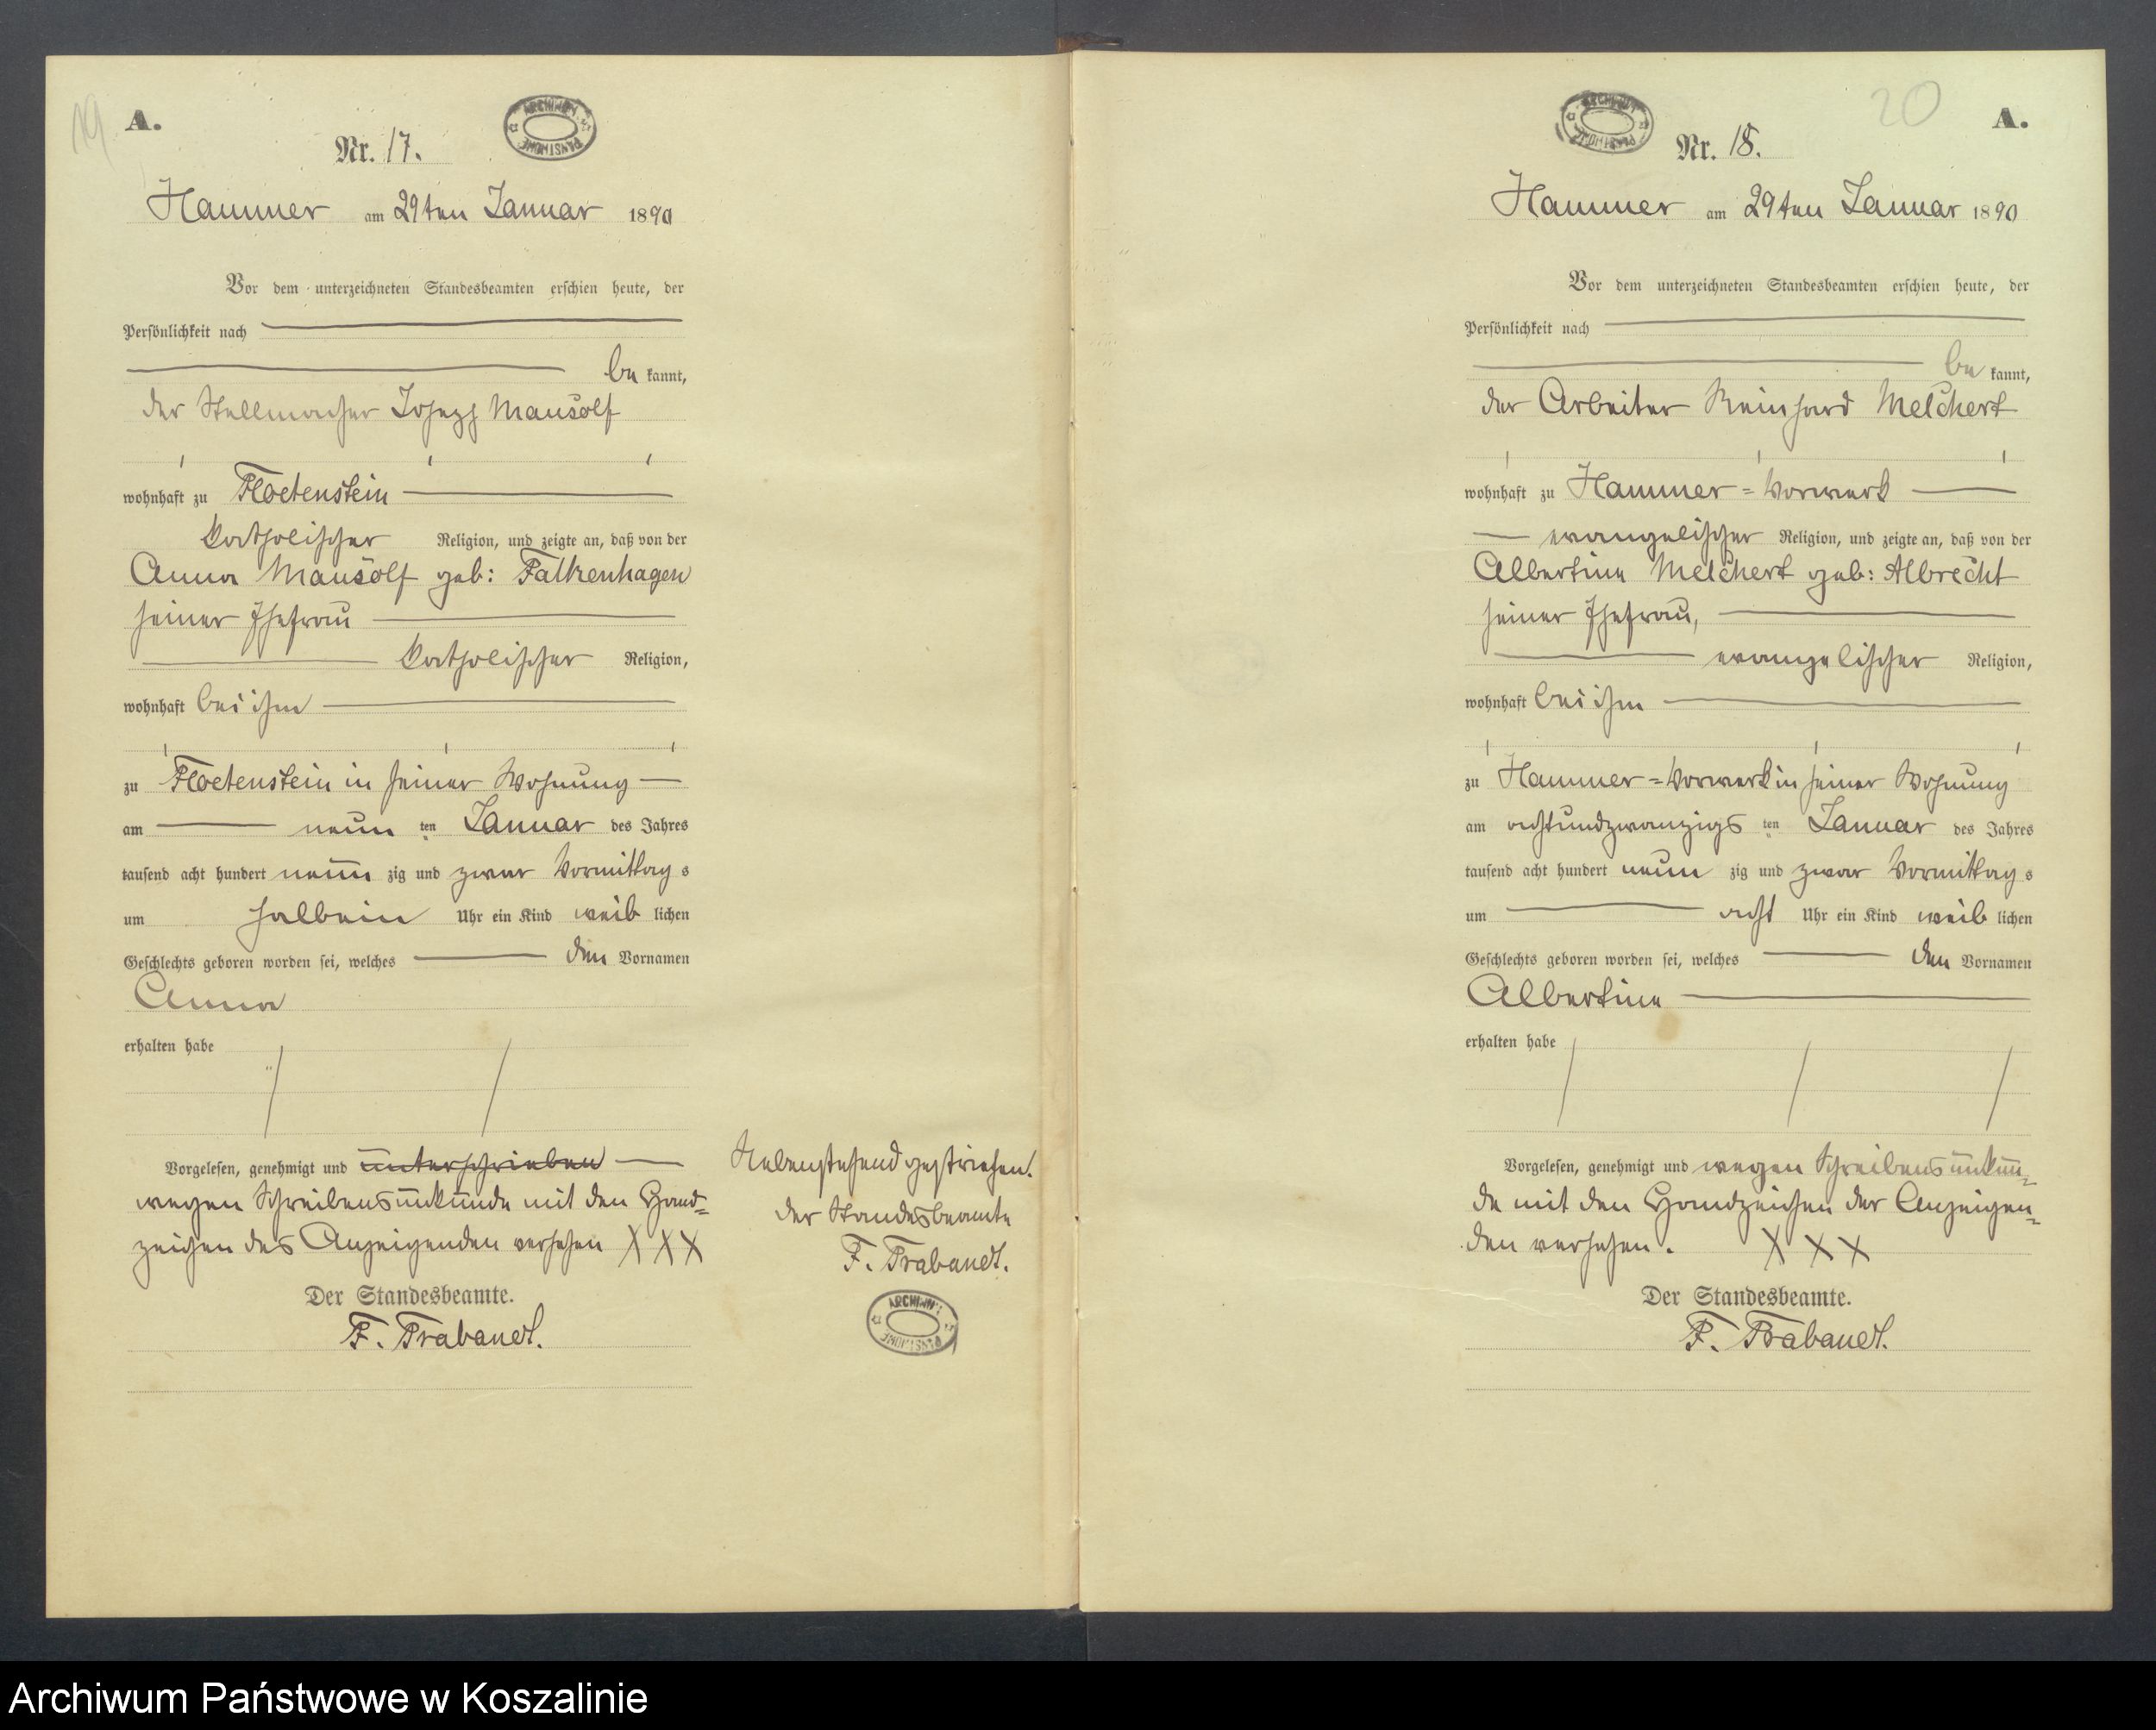 19
A.
ARCHIWUM PAŃSTWOWE
Nr. 17.
Hammer am 29ten Januar 1890
Vor dem unterzeichneten Standesbeamten erschien heute, der
Persönlichkeit nach
be kannt,
der Stellmacher Joseph Mausolf
wohnhaft zu Floetenstein
katholischer Religion, und zeigte an, daß von der
Anna Mausolf geb: Falkenhagen
seiner Ehefrau
katholischer Religion,
wohnhaft bei ihm
zu Floetenstein in seiner Wohnung
am neun ten Januar des Jahres
tausend acht hundert neun zig und zwar Vormittag s
um halb ein Uhr ein Kind weib lichen
Geschlechts geboren worden sei, welches den Vornamen
Anna
erhalten habe
Vorgelesen, genehmigt und unterschrieben
wegen Schreibensunkunde mit den Hand=
zeichen des Anzeigenden versehen XXX
Der Standesbeamte.
F. Trabandt.
Nebenstehend gestrichen.
der Standesbeamte
F. Trabandt.
ARCHIWUM PAŃSTWOWE
ARCHIWUM PAŃSTWOWE
20
A.
Nr. 18.
Hammer am 29ten Januar 1890
Vor dem unterzeichneten Standesbeamten erschien heute, der
Persönlichkeit nach
be kannt,
der Arbeiter Reinhard Melchert
wohnhaft zu Hammer=Vorwerk
evangelischer Religion, und zeigte an, daß von der
Albertine Melchert geb: Albrecht
seiner Ehefrau,
evangelischer Religion,
wohnhaft bei ihm
zu Hammer=Vorwerk in seiner Wohnung
am achtundzwanzigs ten Januar des Jahres
tausend acht hundert neun zig und zwar Vormittag s
um acht Uhr ein Kind weib lichen
Geschlechts geboren worden sei, welches den Vornamen
Albertine
erhalten habe
Vorgelesen, genehmigt und wegen Schreibensunkun=
de mit den Handzeichen der Anzeigen=
den versehen. XXX
Der Standesbeamte.
F. Trabandt.
Archiwum Państwowe w Koszalinie